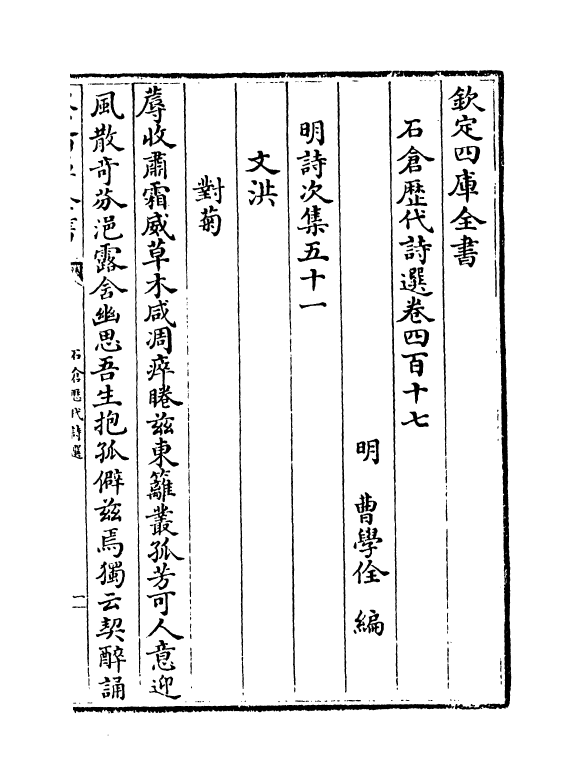 欽定四庫全書
石倉歴代詩選卷四百十七
明 曹學佺 編
明詩次集五十一
文洪
對菊
蓐收肅霜威草木咸凋瘁睠兹東籬叢孤芳可人意迎
風散奇芬浥露含幽思吾生抱孤僻兹焉獨云契醉誦
石倉歴代詩選